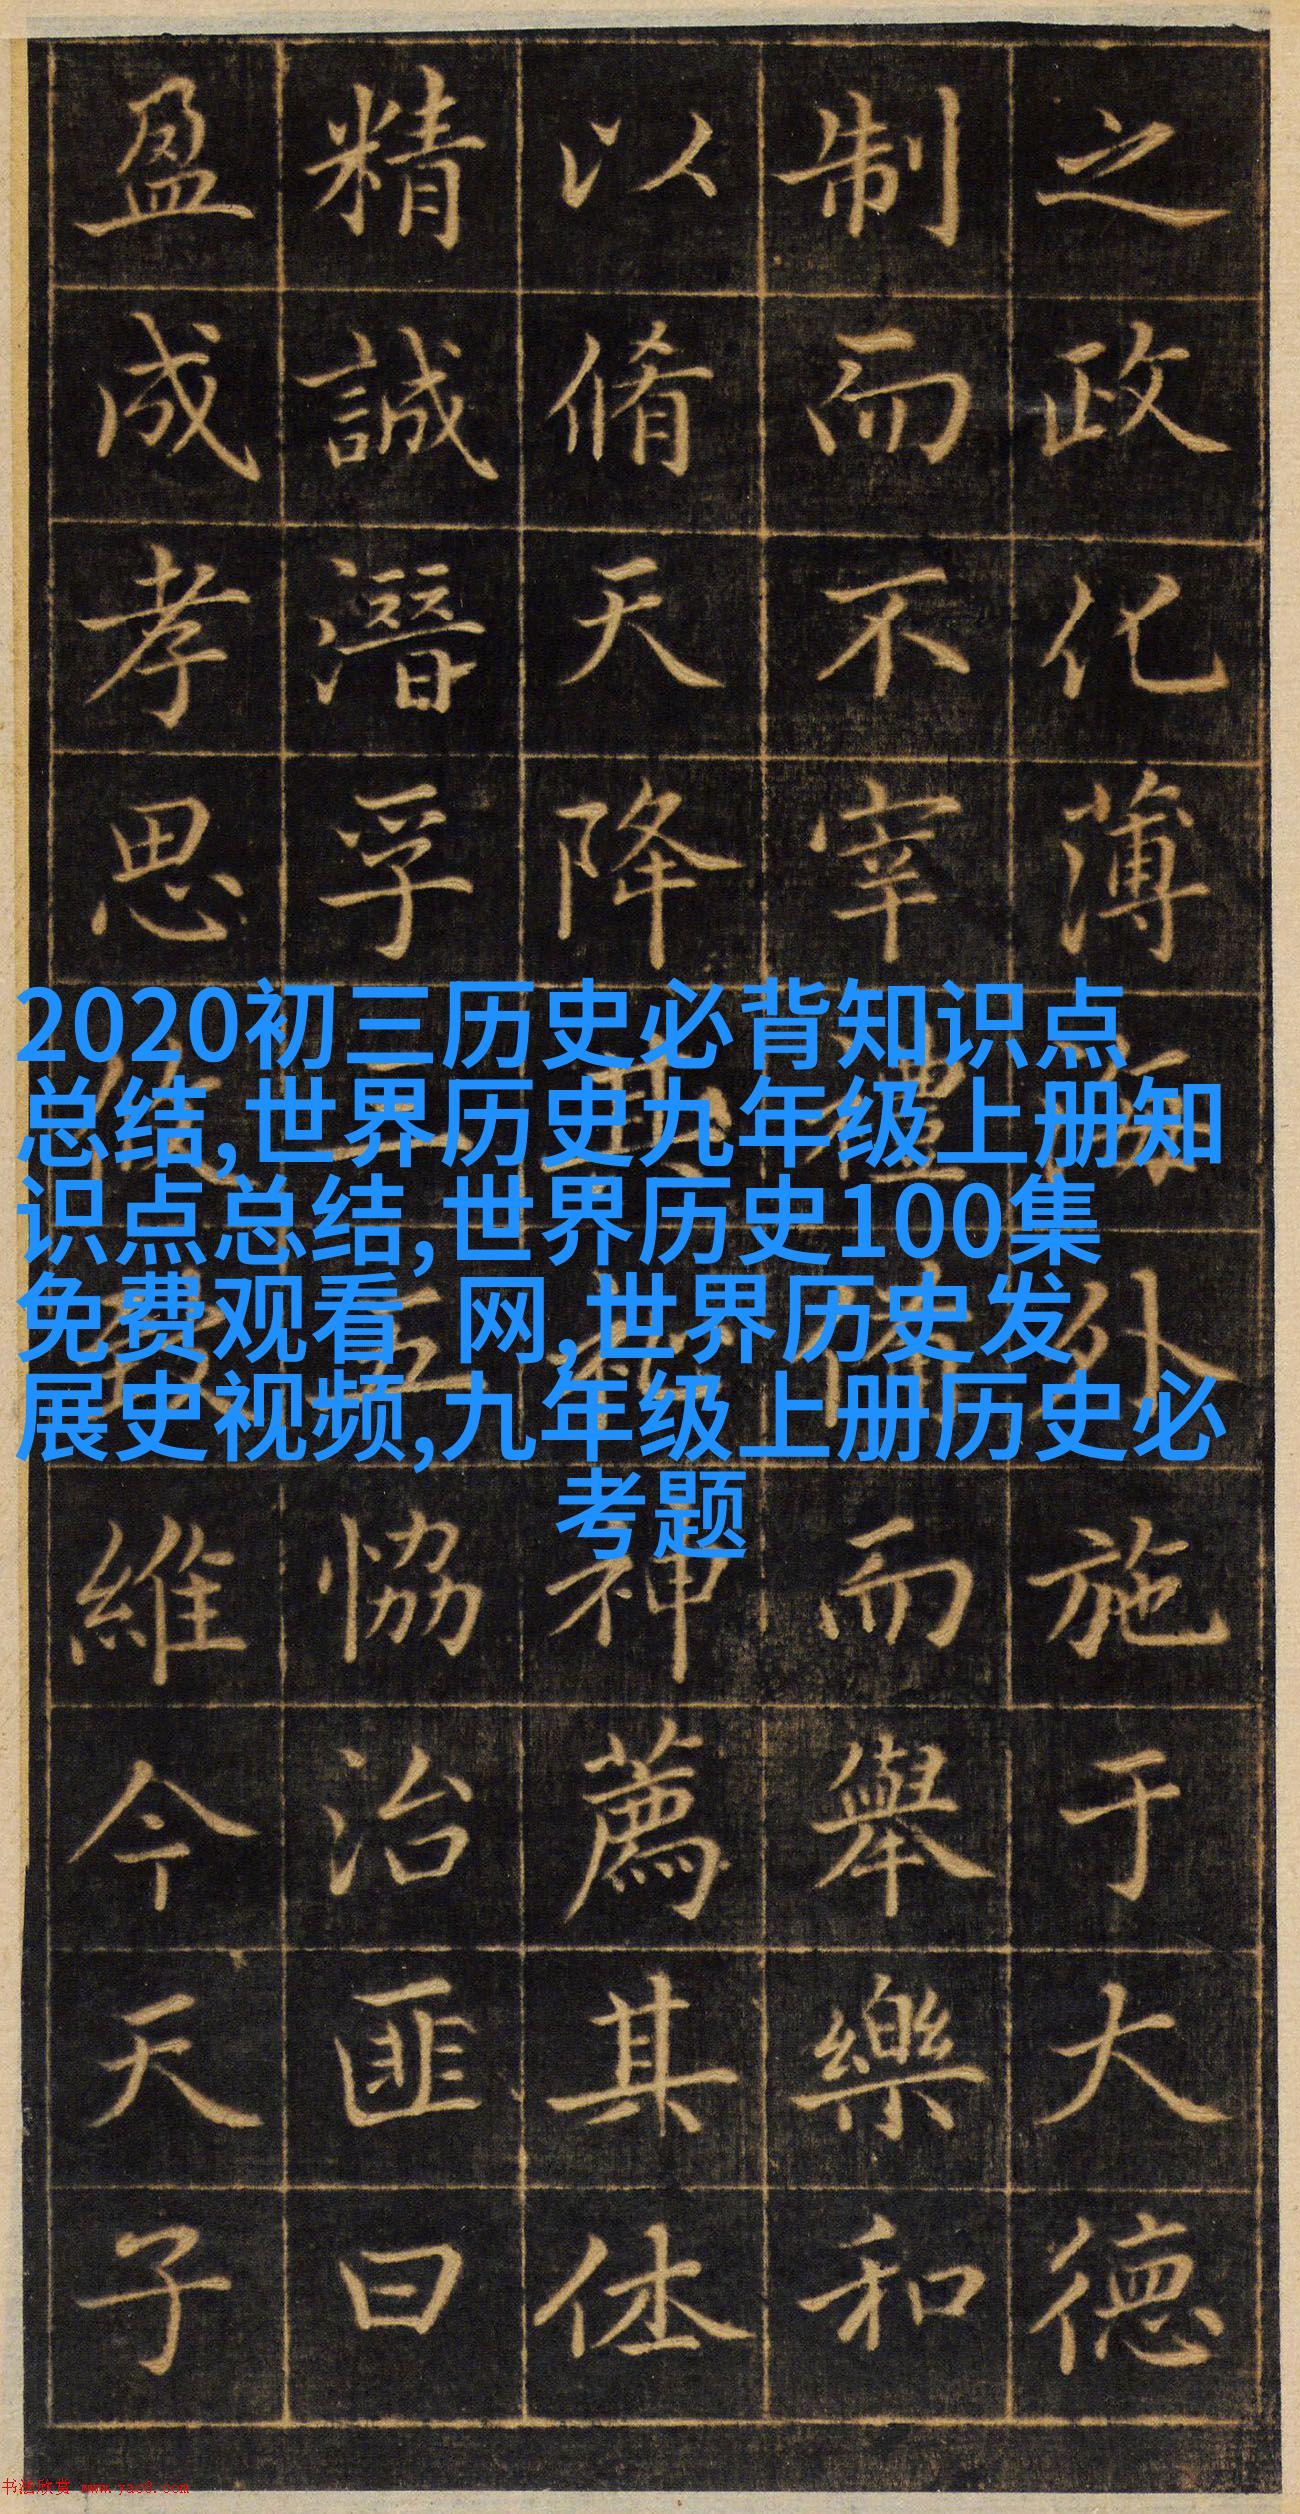 之政化薄外施于大德
制而不宰而舉樂和
以脩天降神薦其休
精誠潛孚恊洽匪曰
盈成孝思維今天子
2020初三历史必背知识点
总结,世界历史九年级上册知
识点总结,世界历史100集
免费观看 网,世界历史发
展史视频,九年级上册历史必
考题
书法欣赏 www.yac8.com